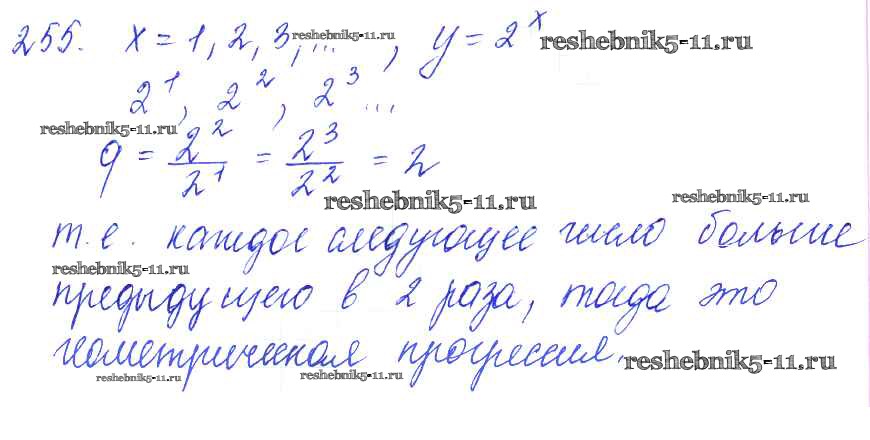 255. x = 1, 2, 3, ... , y = 2^x
reshebnik5-11.ru reshebnik5-11.ru
2^1, 2^2, 2^3 ...
reshebnik5-11.ru
q = 2^2/2^1 = 2^3/2^2 = 2
reshebnik5-11.ru reshebnik5-11.ru
т.е. каждое следующее число больше
reshebnik5-11.ru
предыдущего в 2 раза, тогда это
геометрическая прогрессия.
reshebnik5-11.ru reshebnik5-11.ru reshebnik5-11.ru